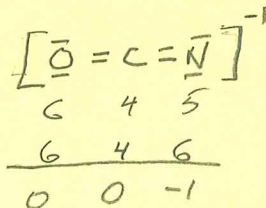 [O̲̅ = C = N̲̅]⁻¹
6 4 5
6 4 6
0 0 -1